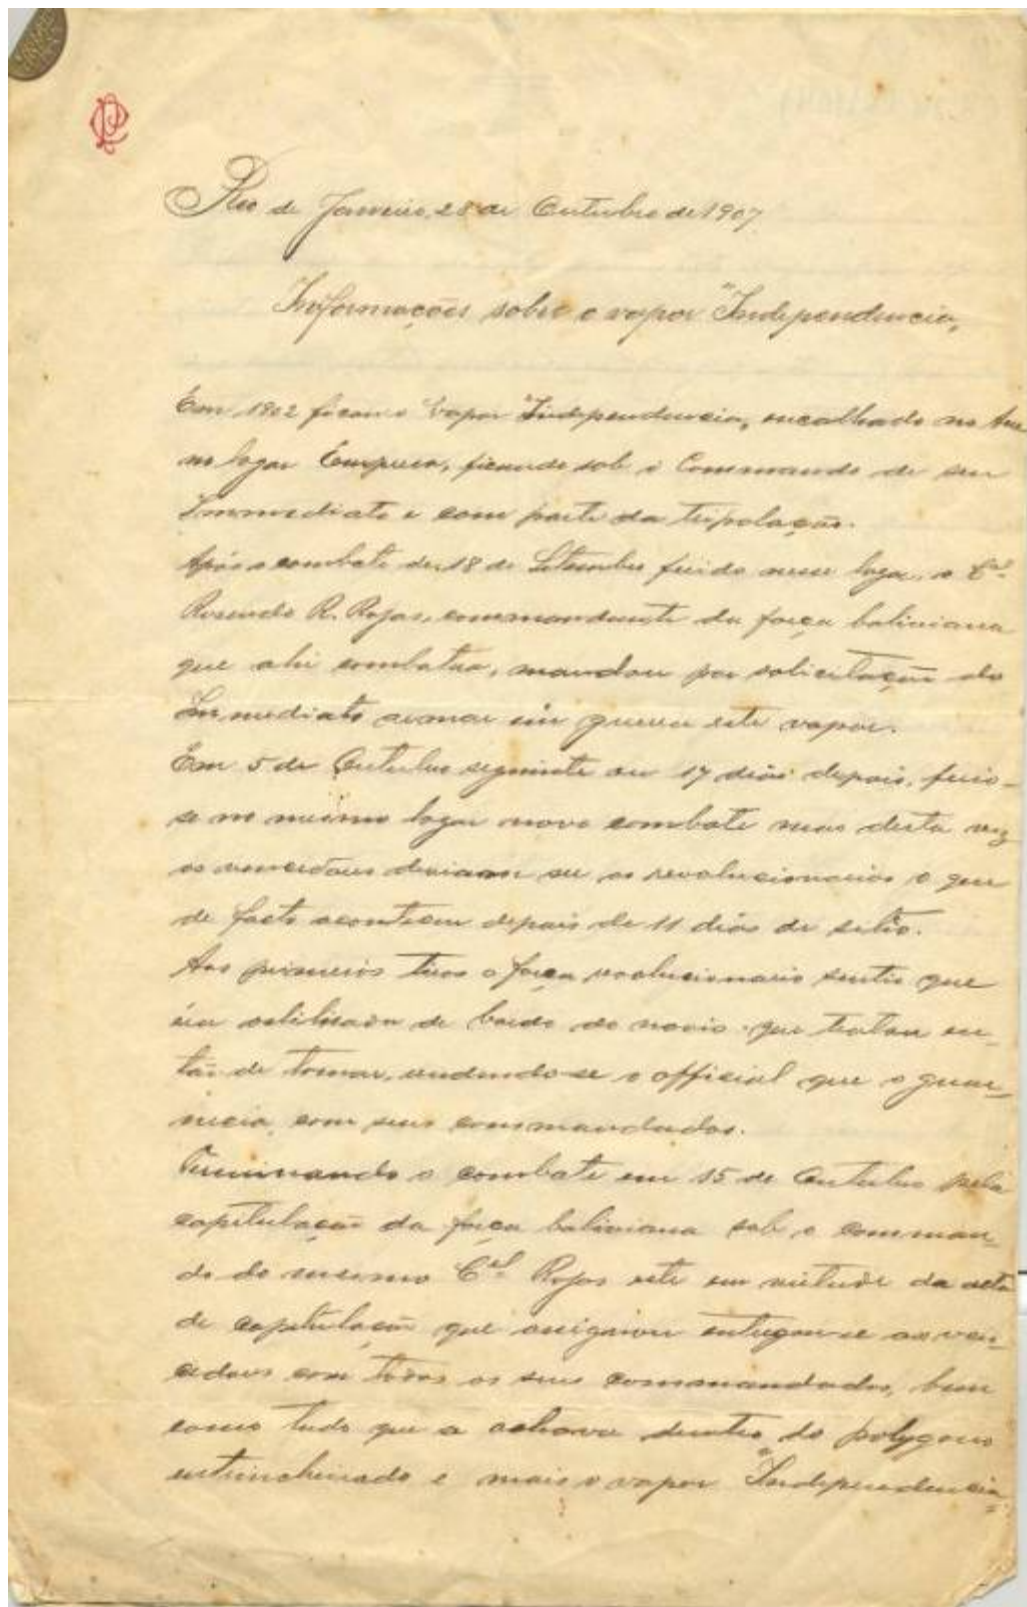 Rio de Janeiro, 28 de Outubro de 1907
Informações sobre o vapor "Independencia,,
Em 1902 ficou o vapor "Independencia,, encalhado no Acre
no logar Empreza, ficando sob o Commando de seu
Immediato e com parte da tripolação.
Após o combate de 18 de Setembro ferido nesse logar, o Cel.
Rosendo R. Rojas, commandante da força boliviana
que ahi combateu, mandou por solicitação do
Immediato armar em guerra este vapor.
Em 5 de Outubro seguinte ou 17 dias depois, ferio-
se no mesmo logar novo combate mas desta vez
os vencedores deviam ser os revolucionarios o que
de facto aconteceu depois de 11 dias de sitio.
Aos primeiros tiros a força revolucionaria sentio que
éra ostilisada de bordo do navio que tratou en-
tão de tomar, rendendo-se o official que o guar-
necia com seus commandados.
Terminando o combate em 15 de Outubro pela
capitulação da força boliviana sob o comman-
do do mesmo Cel. Rojas este em virtude da acta
de capitulação que assignou entregou-se aos ven-
cedores com todos os seus commandados, bem
como tudo que se achava dentro do polygono
entrincheirado e mais o vapor "Independencia,,